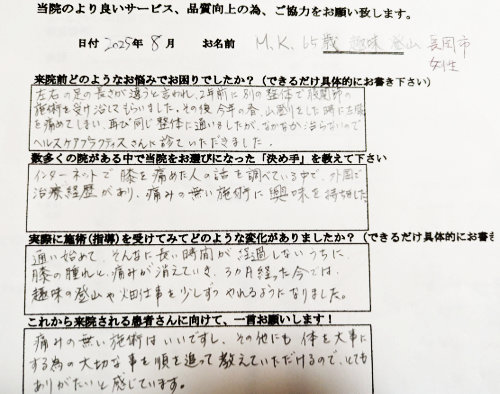 当院のより良いサービス、品質向上の為、ご協力をお願い致します。
日付 2025年 8月 お名前 M.K. 65歳 趣味 登山 長岡市
女性
来院前どのようなお悩みでお困りでしたか？（できるだけ具体的にお書き下さい）
左右の足の長さが違うと言われ、2年前に別の整体で股関節の
施術を受け治してもらいました。その後 今年の春、山登りをした時に左膝
を痛めてしまい、再び同じ整体に通いましたが、なかなか治らないので
ヘルスケアプラクティスさんに診ていただきました。
数多くの院がある中で当院をお選びになった「決め手」を教えて下さい
インターネットで 膝を痛めた人の話を調べている中で、外国で
治療経歴があり、痛みの無い施術に興味を持ちました
実際に施術（指導）を受けてみてどのような変化がありましたか？（できるだけ具体的にお書き
通い始めて、そんなに長い時間が経過しないうちに、
膝の腫れと、痛みが消えていき、3ヵ月経った今では、
趣味の登山や畑仕事を少しずつやれるようになりました。
これから来院される患者さんに向けて、一言お願いします！
痛みの無い施術はいいですし、その他にも 体を大事に
する為の大切な事を順を追って教えていただけるので、とても
ありがたいと感じています。